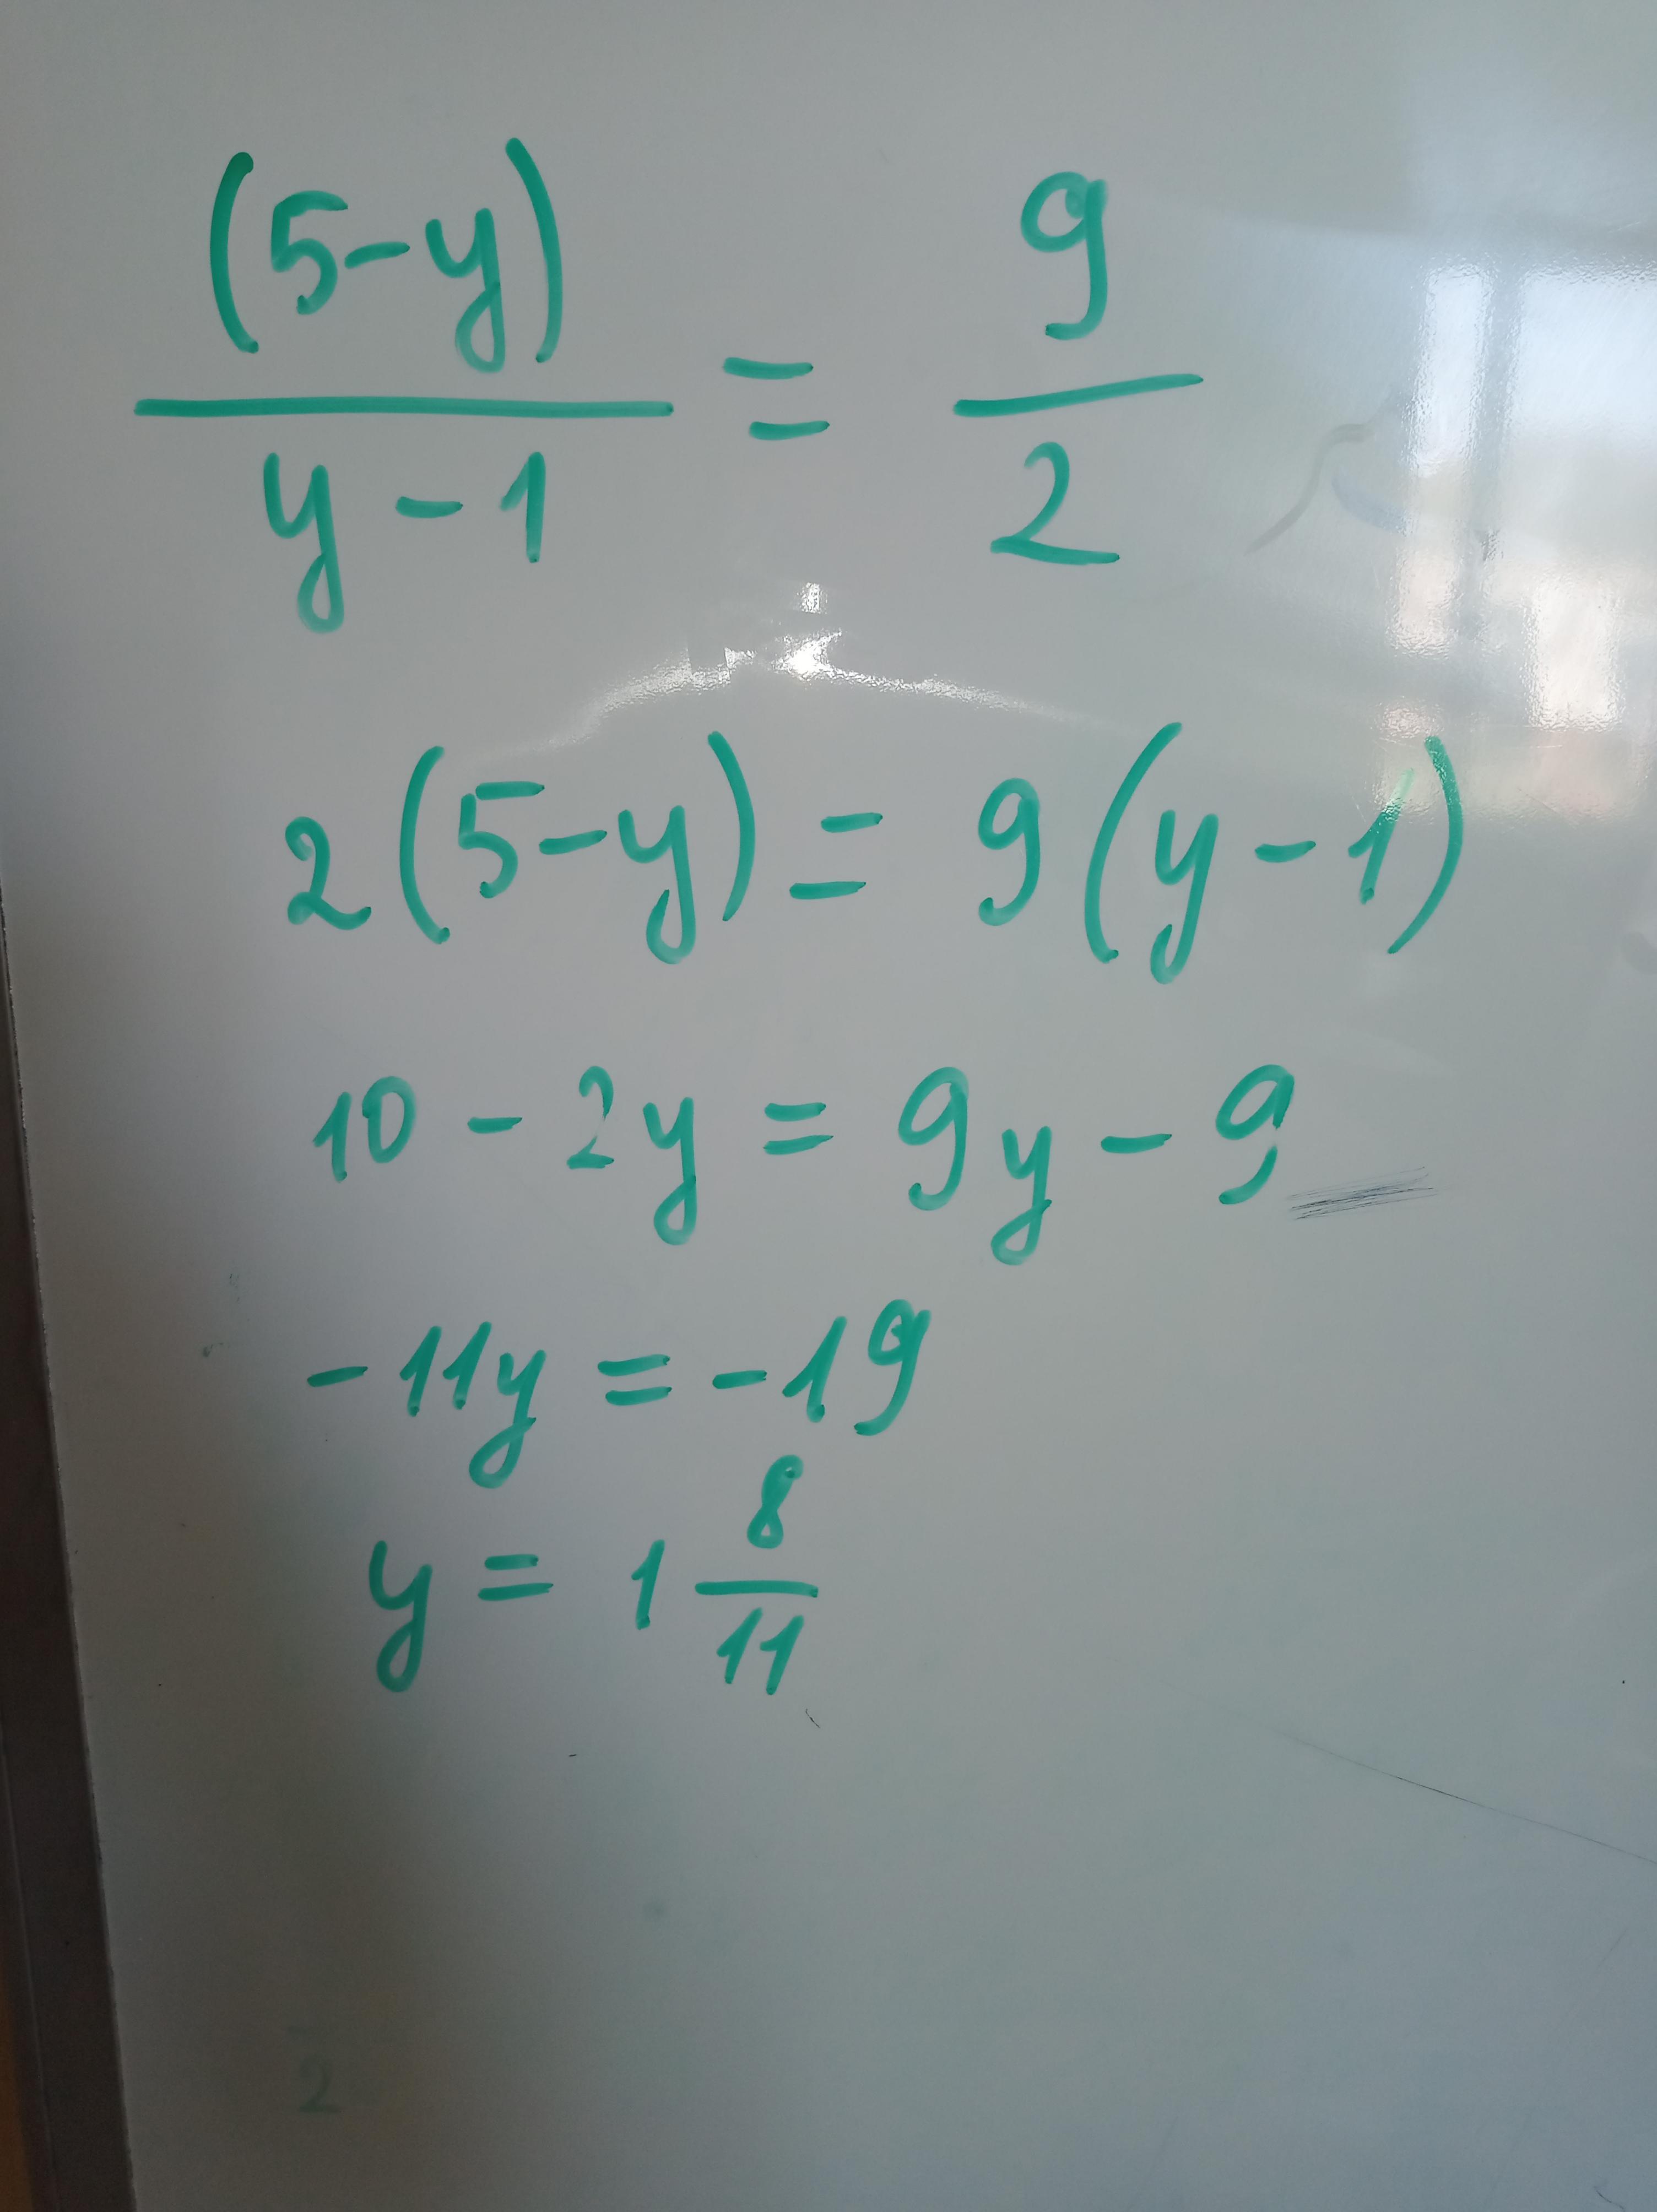 (5-y)/(y-1) = 9/2
2(5-y) = 9(y-1)
10 - 2y = 9y - 9
-11y = -19
y = 1 8/11
2